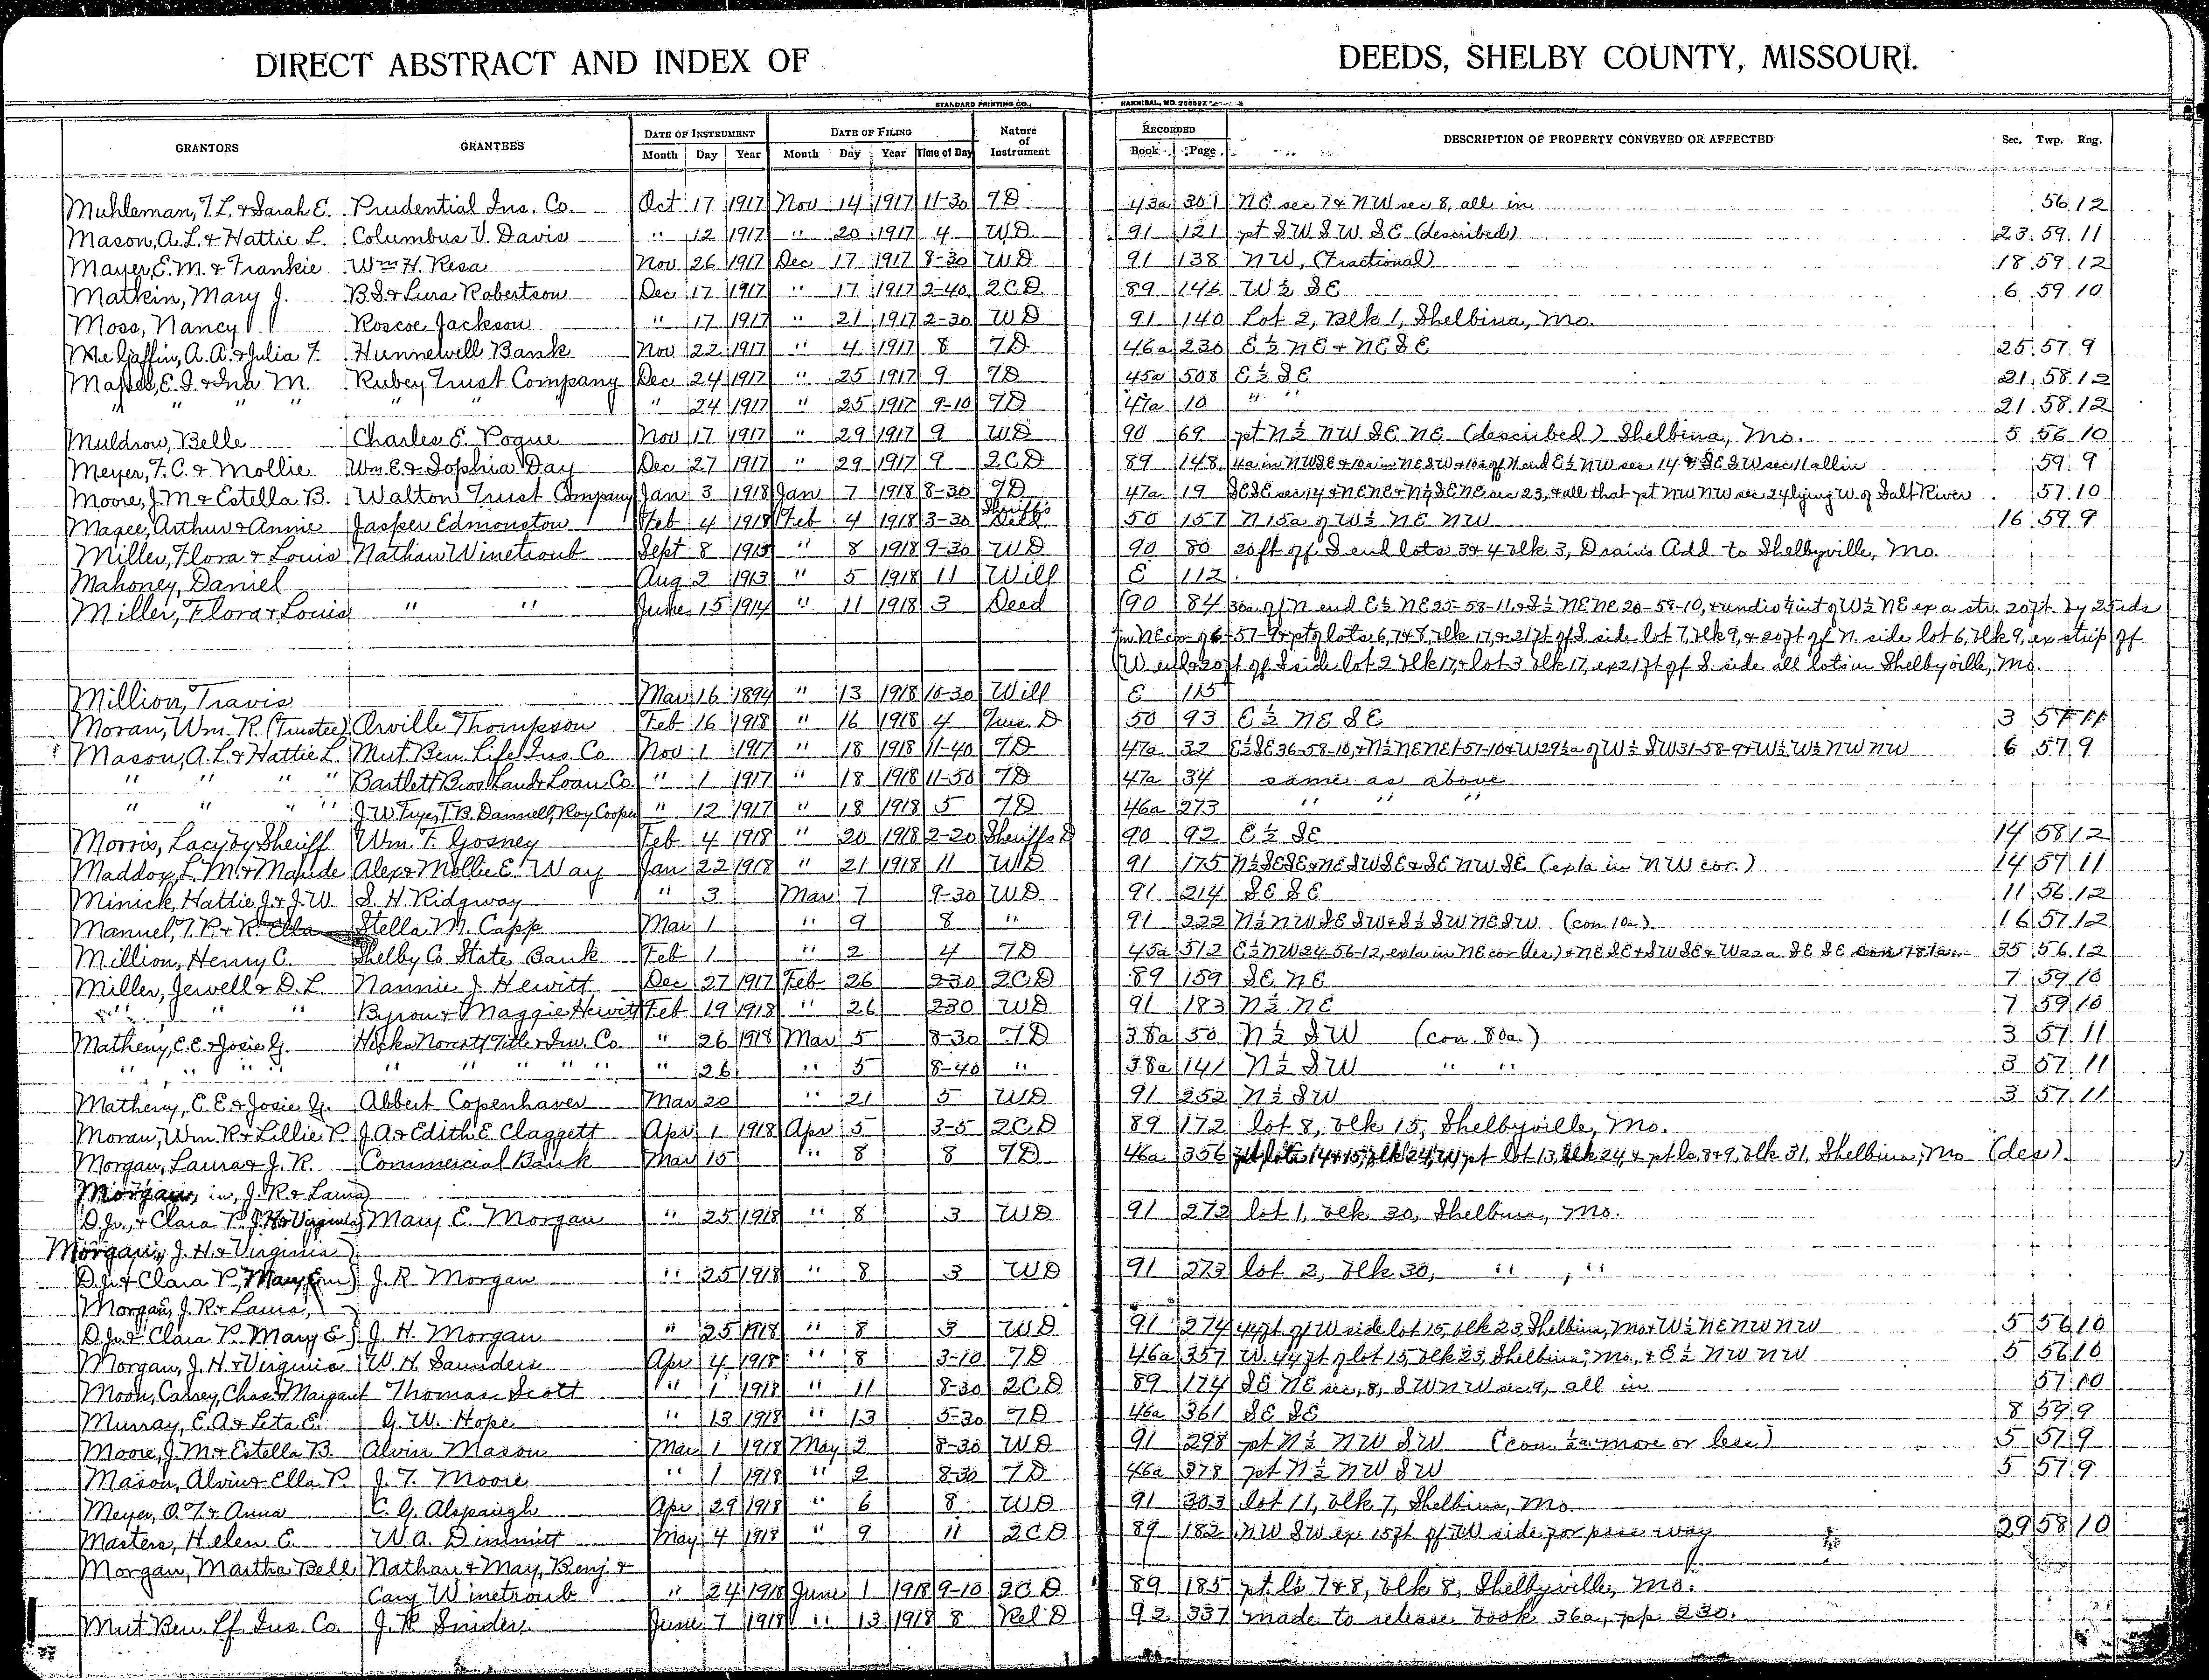 DIRECT ABSTRACT AND INDEX OF DEEDS, SHELBY COUNTY, MISSOURI.
STANDARD PRINTING CO., HANNIBAL, MO.
GRANTORS GRANTEES DATE OF INSTRUMENT DATE OF FILING Nature of Instrument RECORDED DESCRIPTION OF PROPERTY CONVEYED OR AFFECTED Sec. Twp. Rng.
Month Day Year Month Day Year Time of Day Book Page
Muhleman, T. L. & Sarah E. Prudential Ins. Co. Oct 17 1917 Nov 14 1917 11-30 TD 43a 301 NE sec 7 & NW sec 8, all in 56 12
Mason, A. L. & Hattie L. Columbus V. Davis " 12 1917 " 20 1917 4 WD 91 121 pt SW SW SE (described) 23 59 11
Mayer, E. M. & Frankie Wm H. Resa Nov 26 1917 Dec 17 1917 8-30 WD 91 138 NW, (Fractional) 18 59 12
Matkin, Mary J. B. S. & Lura Robertson Dec 17 1917 " 17 1917 2-40 2CD 89 146 W½ SE 6 59 10
Moss, Nancy Roscoe Jackson " 17 1917 " 21 1917 2-30 WD 91 140 Lot 2, Blk 1, Shelbina, Mo.
A. A. & Julia F. Hunnewell Bank Nov 22 1917 " 4 1917 8 TD 46a 230 E½ NE & NE SE 25 57 9
E. I. & Ina M. Rubey Trust Company Dec 24 1917 " 25 1917 9 TD 45a 508 E½ SE 21 58 12
" " " " " " " " 24 1917 " 25 1917 9-10 TD 47a 10 " " 21 58 12
Muldrow, Belle Charles E. Pogue Nov 17 1917 " 29 1917 9 WD 90 69 pt N½ NW SE NE (described) Shelbina, Mo. 5 56 10
Meyer, F. C. & Mollie Wm. E. & Sophia Day Dec 27 1917 " 29 1917 9 2CD 89 148 4a in NWSE & 10a in NESW & 10a of N end E½ NW sec 14 & SESW sec 11 all in 59 9
Moore, J. M. & Estella B. Walton Trust Company Jan 3 1918 Jan 7 1918 8-30 TD 47a 19 SESE sec 14 & NENE & N½ SENE sec 23, & all that pt NW NW sec 24 lying W of Salt River 57 10
Magee, Arthur & Annie Jasper Edmonston Feb 4 1918 Feb 4 1918 3-30 Sheriffs Deed 50 157 N 15a of W½ NE NW 16 59 9
Miller, Flora & Louis Nathan Winetroub Sept 8 1915 " 8 1918 9-30 WD 90 80 20 ft off S end lots 3 & 4 blk 3, Drain's Add. to Shelbyville, Mo.
Mahoney, Daniel Aug 2 " 5 1918 11 Will E 112
Miller, Flora & Louis " " June 15 1914 " 11 1918 3 Deed 90 84 30a of N end E½ NE 25-58-11, & S½ NE NE 20-58-10, & undiv ¼ int of W½ NE ex a str. 20 ft. by 25 rds
in NE cor of 6-57-9 & pt of lots 6, 7 & 8, blk 17, & 21 ft of S. side lot 7, blk 9, & 20 ft of N. side lot 6, blk 9, ex strip off
W. end & 20 ft of S side lot 2 blk 17, & lot 3 blk 17, ex 21 ft of S. side all lots in Shelbyville, Mo.
Million, Travis Mar 16 1894 " 13 1918 10-30 Will E 115
Moran, Wm. R. (Trustee) Orville Thompson Feb 16 1918 " 16 1918 4 Trus. D 50 93 E½ NE SE 3 57 11
Mason, A. L. & Hattie L. Mut Ben Life Ins. Co Nov 1 1917 " 18 1918 11-40 TD 47a 32 E½SE 36-58-10, & N½ NENE 1-57-10 & W 29½a of W½ SW 31-58-9 & W½ W½ NW NW 6 57 9
" " " " Bartlett Bros Land & Loan Co. " 1 1917 " 18 1918 11-50 TD 47a 34 same as above
" " " " J. W. Frye, T. B. Dannell, Roy Cooper " 12 1917 " 18 1918 5 TD 46a 273 " " "
Morris, Lacy by Sheriff Wm. T. Gosney Feb 4 1918 " 20 1918 2-20 Sheriffs D 90 92 E½ SE 14 58 12
Maddox, L. M. & Maude Alex & Mollie E. Way Jan 22 1918 " 21 1918 11 WD 91 175 N½ SESE & NE SWSE & SE NW SE (ex 1a in NW cor.) 14 57 11
Minick, Hattie J. & J. W. S. H. Ridgway " 3 Mar 7 9-30 WD 91 214 SE SE 11 56 12
Manuel, T. P. & R. Ella Stella M. Capp Mar 1 " 9 8 " 91 222 N½ NW SE SW & S½ SW NE SW (con. 10a) 16 57 12
Million, Henry C. Shelby Co. State Bank Feb 1 " 2 4 TD 45a 512 E½ NW 24-56-12, ex 1a in NE cor des) & NE SE & SW SE & W 22a SE SE 35 56 12
Miller, Jewell & D. L. Nannie J. Hewitt Dec 27 1917 Feb 26 2-30 2CD 89 159 SE NE 7 59 10
" " " Byron & Maggie Hewitt Feb 19 1918 " 26 230 WD 91 183 N½ NE 7 59 10
Matheny, E. E. & Josie G. Title & Inv. Co. " 26 1918 Mar 5 8-30 TD 38a 50 N½ SW (con. 80a.) 3 57 11
" " " " " " " " " " 26 " 5 8-40 " 38a 141 N½ SW " " 3 57 11
Matheny, E. E. & Josie G. Albert Copenhaver Mar 20 " 21 5 WD 91 252 N½ SW 3 57 11
Moran, Wm. R. & Lillie P. J. A. & Edith E. Claggett Apr 1 1918 Apr 5 3-5 2CD 89 172 lot 8, blk 15, Shelbyville, Mo.
Morgan, Laura & J. R. Commercial Bank Mar 15 " 8 8 TD 46a 356 pt lot 13, blk 24, & pt ls, 8 & 9, blk 31, Shelbina, Mo (des).
Morgan, J. R. & Laura
D. Jr., & Clara P. J. H. & Virginia Mary E. Morgan " 25 1918 " 8 3 WD 91 272 lot 1, blk 30, Shelbina, Mo.
Morgan, J. H. & Virginia
D. Jr. & Clara P, Mary E J. R. Morgan " 25 1918 " 8 3 WD 91 273 lot 2, blk 30, " , "
Morgan, J. R. & Laura,
D. Jr. & Clara P. Mary E J. H. Morgan " 25 1918 " 8 3 WD 91 274 44 ft. of W side lot 15, blk 23, Shelbina, Mo & W½ NE NW NW 5 56 10
Morgan, J. H. & Virginia W. H. Saunders Apr 4 1918 " 8 3-10 TD 46a 357 W. 44 ft of lot 15, blk 23, Shelbina, Mo., & E½ NW NW 5 56 10
Moon, Carrey, Chas & Margaret Thomas Scott " 1 1918 " 11 8-30 2CD 89 174 SE NE sec, 8, SW NW sec 9, all in 57 10
Murray, E. A. & Leta E. G. W. Hope " 13 1918 " 13 5-30 TD 46a 361 SE SE 8 59 9
Moore, J. M. & Estella B. Alvin Mason Mar 1 1918 May 2 8-30 WD 91 298 pt N½ NW SW (con. ½a more or less) 5 57 9
Mason, Alvin & Ella P. J. T. Moore " 1 1918 " 2 8-30 TD 46a 378 pt N½ NW SW 5 57 9
Meyer, O. T. & Anna C. G. Alspaugh Apr 29 1918 " 6 8 WD 91 303 lot 11, blk 7, Shelbina, Mo.
Masters, Helen E. W. A. Dimmitt May 4 1918 " 9 11 2CD 89 182 NW SW ex 15 ft off W side for pass way 29 58 10
Morgan, Martha Bell Nathan & May, Benj &
Cary Winetroub " 24 1918 June 1 1918 9-10 2CD 89 185 pt. ls 7 & 8, blk 8, Shelbyville, Mo.
Mut Ben. Lf. Ins. Co. J. R. Snider June 7 1918 " 13 1918 8 Rel D 92 337 made to release book 36a, pp. 230.